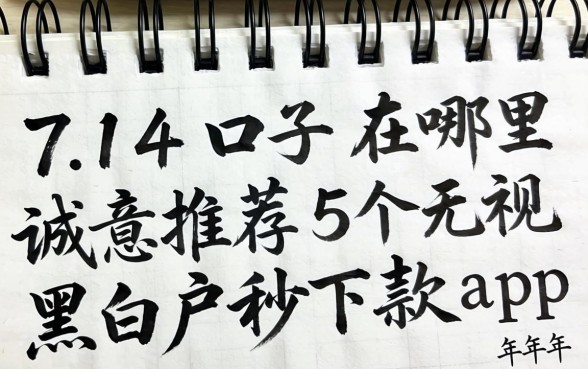 7.14 口子 在哪里
诚意推荐5个无视
黑白户秒下款app
年年年